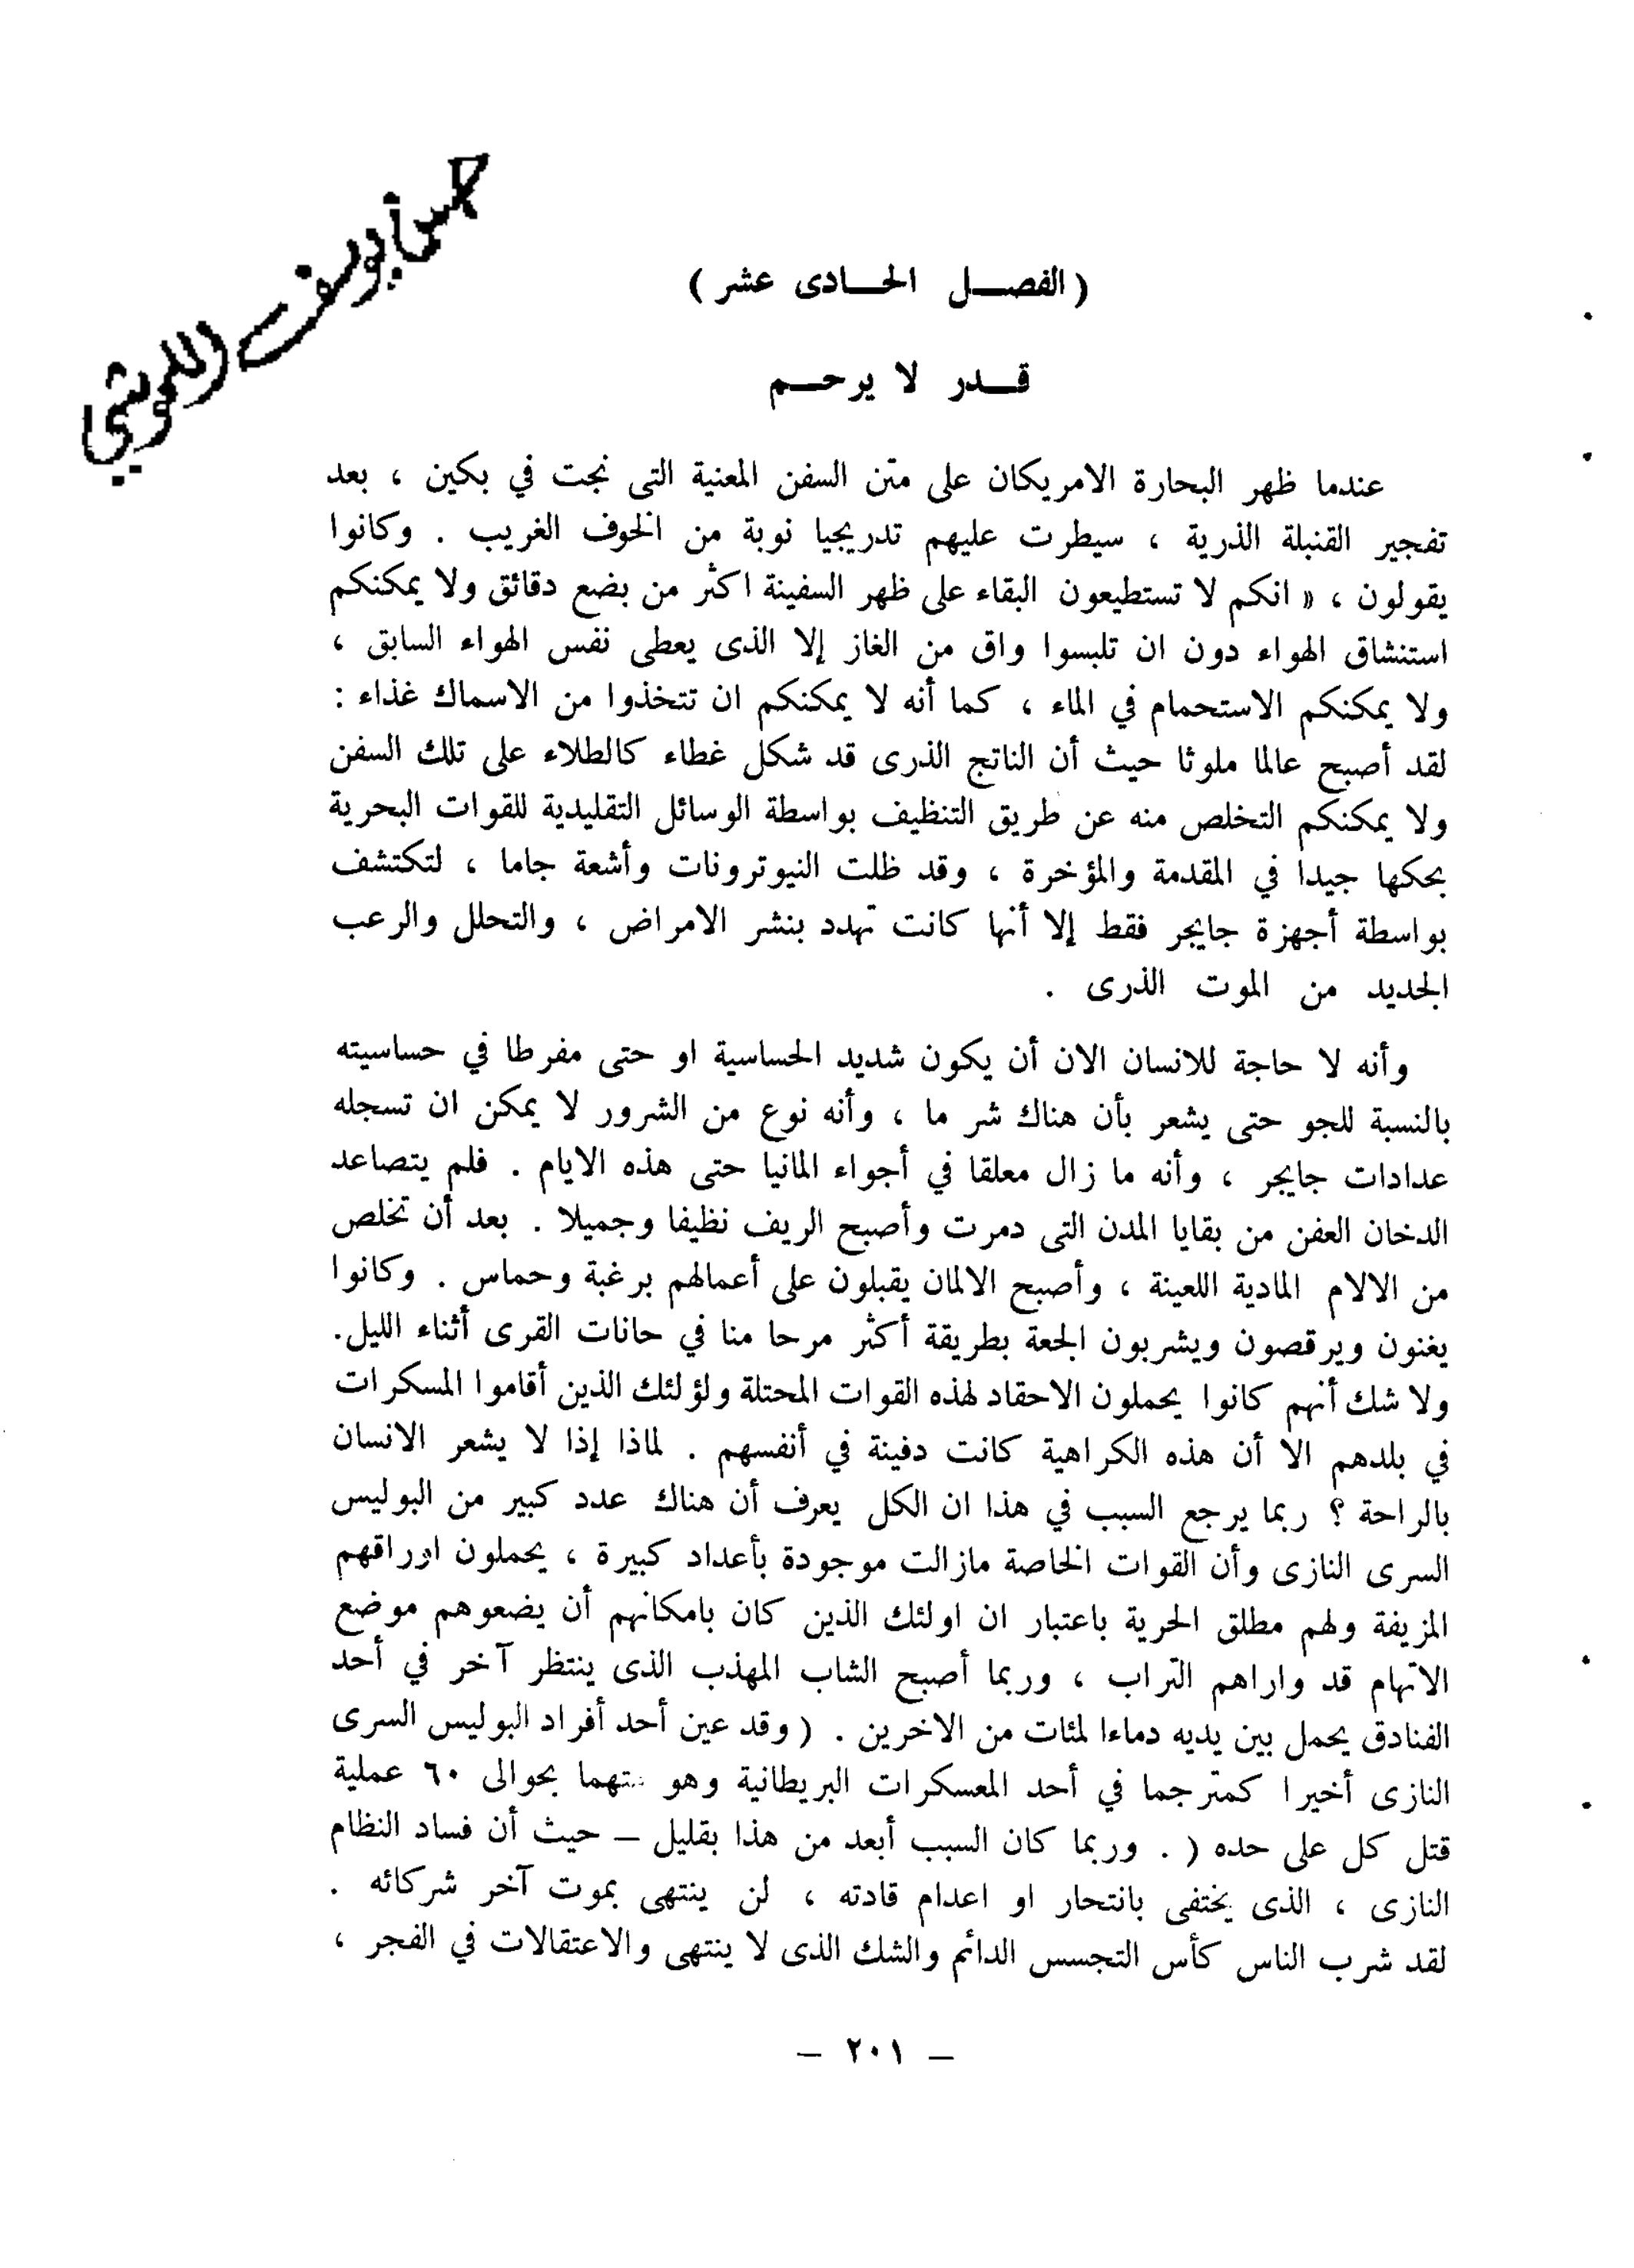 ( الفصـــل الحـــادى عشر )
قـــدر لا يرحـــم
عندما ظهر البحارة الامريكان على متن السفن المعنية التى نجت في بكين ، بعد
تفجير القنبلة الذرية ، سيطرت عليهم تدريجيا نوبة من الخوف الغريب . وكانوا
يقولون ، « انكم لا تستطيعون البقاء على ظهر السفينة اكثر من بضع دقائق ولا يمكنكم
استنشاق الهواء دون ان تلبسوا واق من الغاز إلا الذى يعطى نفس الهواء السابق ،
ولا يمكنكم الاستحمام في الماء ، كما أنه لا يمكنكم ان تتخذوا من الاسماك غذاء :
لقد أصبح عالما ملوثا حيث أن الناتج الذرى قد شكل غطاء كالطلاء على تلك السفن
ولا يمكنكم التخلص منه عن طريق التنظيف بواسطة الوسائل التقليدية للقوات البحرية
بحكها جيدا في المقدمة والمؤخرة ، وقد ظلت النيوترونات وأشعة جاما ، لتكتشف
بواسطة أجهزة جايجر فقط إلا أنها كانت تهدد بنشر الامراض ، والتحلل والرعب
الجديد من الموت الذرى .
وأنه لا حاجة للانسان الان أن يكون شديد الحساسية او حتى مفرطا في حساسيته
بالنسبة للجو حتى يشعر بأن هناك شر ما ، وأنه نوع من الشرور لا يمكن ان تسجله
عدادات جايجر ، وأنه ما زال معلقا في أجواء المانيا حتى هذه الايام . فلم يتصاعد
الدخان العفن من بقايا المدن التى دمرت وأصبح الريف نظيفا وجميلا . بعد أن تخلص
من الالام المادية اللعينة ، وأصبح الالمان يقبلون على أعمالهم برغبة وحماس . وكانوا
يغنون ويرقصون ويشربون الجعة بطريقة أكثر مرحا منا في حانات القرى أثناء الليل.
ولا شك أنهم كانوا يحملون الاحقاد لهذه القوات المحتلة ولؤلئك الذين أقاموا المسكرات
في بلدهم الا أن هذه الكراهية كانت دفينة في أنفسهم . لماذا إذا لا يشعر الانسان
بالراحة ؟ ربما يرجع السبب في هذا ان الكل يعرف أن هناك عدد كبير من البوليس
السرى النازى وأن القوات الخاصة مازالت موجودة بأعداد كبيرة ، يحملون اوراقهم
المزيفة ولهم مطلق الحرية باعتبار ان اولئك الذين كان بامكانهم أن يضعوهم موضع
الاتهام قد واراهم التراب ، وربما أصبح الشاب المهذب الذى ينتظر آخر في أحد
الفنادق يحمل بين يديه دماءا لمئات من الاخرين . ( وقد عين أحد أفراد البوليس السرى
النازى أخيرا كمترجما في أحد المعسكرات البريطانية وهو متهما بحوالى ٦٠ عملية
قتل كل على حده ( . وربما كان السبب أبعد من هذا بقليل – حيث أن فساد النظام
النازى ، الذى يختفى بانتحار او اعدام قادته ، لن ينتهى بموت آخر شركائه .
لقد شرب الناس كأس التجسس الدائم والشك الذى لا ينتهى والاعتقالات في الفجر ،
– ٢٠١ –